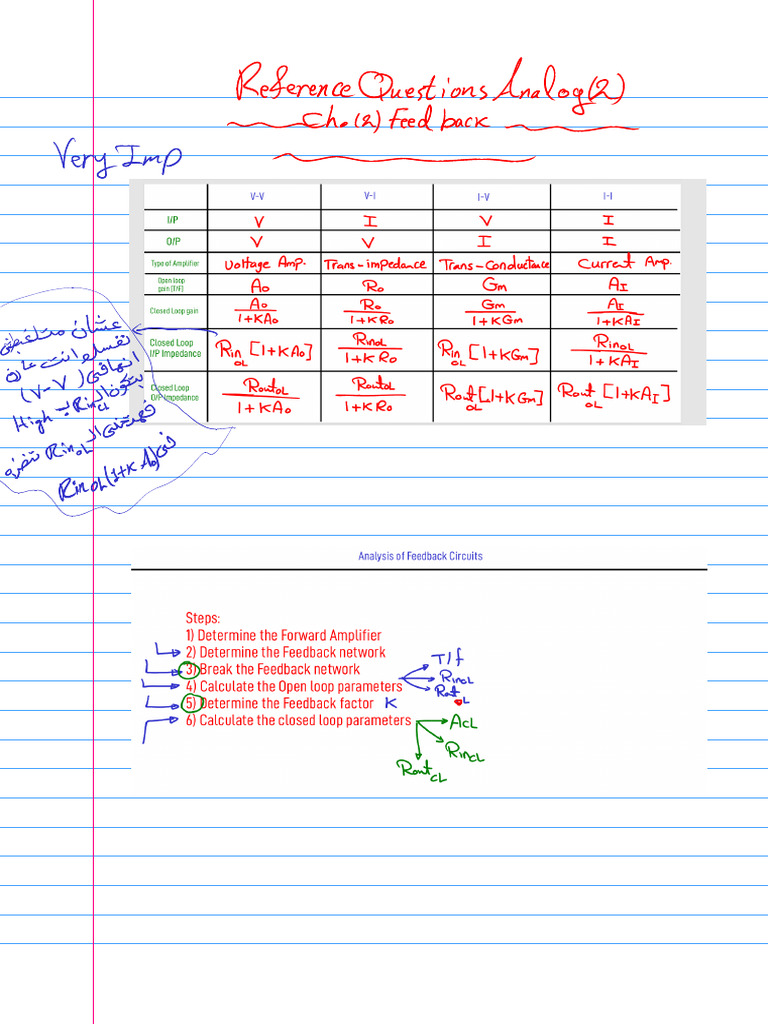 Reference Questions Analog(2)
Ch.(2) Feedback
Very Imp
V-V V-I I-V I-I
I/P V I V I
O/P V V I I
Type of Amplifier Voltage Amp. Trans-impedance Trans-Conductance Current Amp.
Open loop gain [T/F] Ao Ro Gm AI
Closed Loop gain Ao/1+KAo Ro/1+KRo Gm/1+KGm AI/1+KAI
Closed Loop I/P Impedance RinOL[1+KAo] RinOL/1+KRo RinOL[1+KGm] RinOL/1+KAI
Closed Loop O/P Impedance RoutOL/1+KAo RoutOL/1+KRo RoutOL[1+KGm] RoutOL[1+KAI]
عشان متلغبطش
نفسك انت عارف
ان فى (V-V)
بتكون الـ RinCL بـ High
RinOL تضربه
فى RinOL(1+KAo)
Analysis of Feedback Circuits
Steps:
1) Determine the Forward Amplifier
2) Determine the Feedback network
3) Break the Feedback network
4) Calculate the Open loop parameters
T/f
RinOL
RoutOL
5) Determine the Feedback factor K
6) Calculate the closed loop parameters
ACL
RinCL
RoutCL